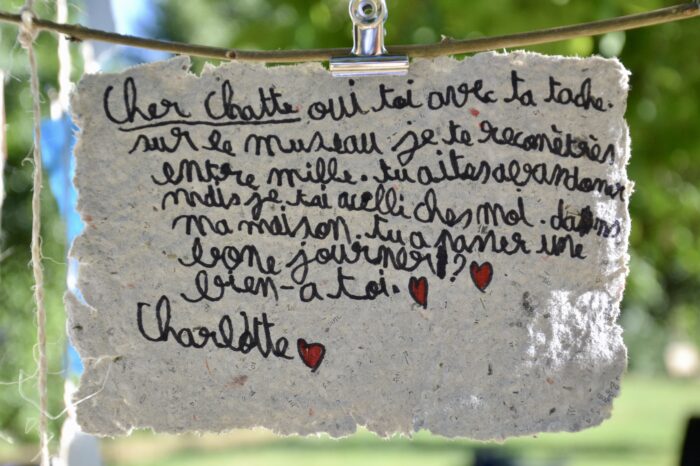 Cher Chatte oui toi avec ta tache.
sur le museau je te reconètrès
entre mille. tu aites abandoner
mais je t'ai aceulli ches moi. dans
ma maison. tu a passer une
bone journer ?
bien-a toi.
Charlotte